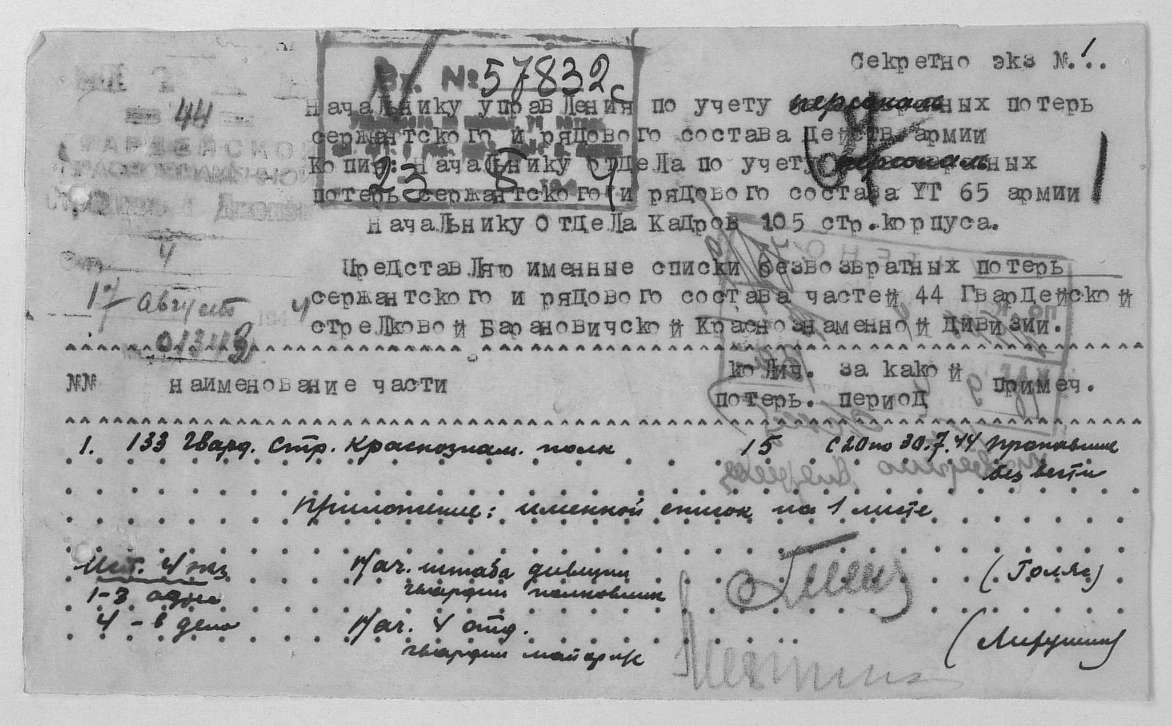 Секретно экз №.1..
Вх. №57832с
44
Начальнику управления по учету персональных потерь
сержантского и рядового состава Действ армии
Копия: Начальнику отдела по учету персональных
потерь сержантского и рядового состава УГ 65 армии
23 8 4
Начальнику отдела кадров 105 стр.корпуса.
4
17 августа 1944
01343
Представляю именные списки безвозвратных потерь
сержантского и рядового состава частей 44 Гвардейской
стрелковой Барановичской Краснознаменной Дивизии.
№№ наименование части колич. потерь. за какой период примеч.
1. 133 Гвард. Стр. Краснознам. полк 15 с 20 по 30.7.44 пропавшие
без вести
Приложение: именной список на 1 листе
Исп. 4 экз Нач. штаба дивизии
1-3 адрес гвардии полковник (Голяс)
4 - в дело Нач. 4 отд.
гвардии майор